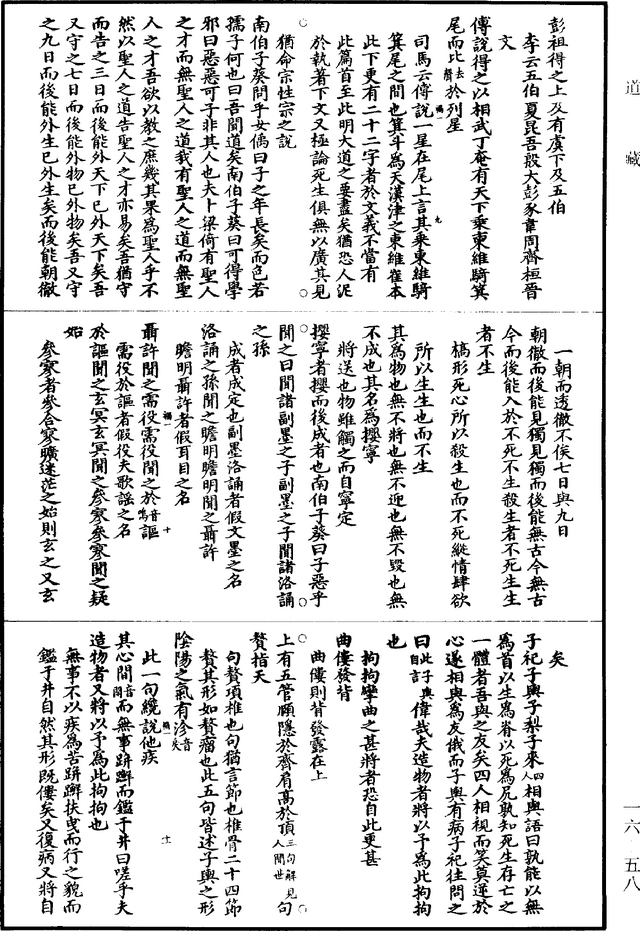 彭祖得之上及有虞下及五伯
李云五伯夏昆吾殷大彭豕韋周齊桓晉
文
傅說得之以相武丁奄有天下乘東維騎箕
尾而比去聲於列星
司馬云傅說一星在尾上言其乘東維騎
箕尾之間也箕斗為天漢津之東維崔本
此下更有二十二字者於文義不當有
此篇首至此明大道之要盡矣猶恐人泥
於執著下文又極論死生俱無以廣其見
猶命宗性宗之說
南伯子葵問乎女偊曰子之年長矣而色若
孺子何也曰吾聞道矣南伯子葵曰可得學
邪曰惡惡可子非其人也夫卜梁倚有聖人
之才而無聖人之道我有聖人之道而無聖
人之才吾欲以教之庶幾其果為聖人乎不
然以聖人之道告聖人之才亦易矣吾猶守
而告之三日而後能外天下已外天下矣吾
又守之七日而後能外物已外物矣吾又守
之九日而後能外生已外生矣而後能朝徹
一朝而透徹不俟七日與九日
朝徹而後能見獨見獨而後能無古今無古
今而後能入於不死不生殺生者不死生生
者不生
槁形死心所以殺生也而不死縱情肆欲
所以生生也而不生
其為物也無不將也無不迎也無不毀也無
不成也其名為攖寧
將送也物雖觸之而自寧定
攖寧者攖而後成者也南伯子葵曰子惡乎
聞之曰聞諸副墨之子副墨之子聞諸洛誦
之孫
成者成定也副墨洛誦者假文墨之名
洛誦之孫聞之瞻明瞻明聞之聶許
瞻明聶許者假耳目之名
聶許聞之需役需役聞之於音烏謳
需役於謳者假役夫歌謠之名
於謳聞之玄冥玄冥聞之參寥參寥聞之疑
始
參寥者參合寥曠迷茫之始則玄之又玄
矣
子祀子輿子犁子來四人相與語曰孰能以無
為首以生為脊以死為尻孰知死生存亡之
一體者吾與之友矣四人相視而笑莫逆於
心遂相與為友俄而子輿有病子祀往問之
曰此子輿自言偉哉夫造物者將以予為此拘拘
也
拘拘攣曲之甚將者恐自此更甚
曲僂發背
曲僂則背發露在上
上有五管頤隱於齊肩高於頂三句解見人間世句
贅指天
句贅項椎也句猶言節也椎骨二十四節
贅其形如贅瘤也此五句皆述子輿之形
陰陽之氣有沴音戾
此一句纔說他疾
其心間音閑而無事跰𨇤而鑑于井曰嗟乎夫
造物者又將以予為此拘拘也
無事不以疾為苦跰𨇤扶曳而行之貌而
鑑于井自然其形既僂矣又復病又將自
道藏
一六
五八